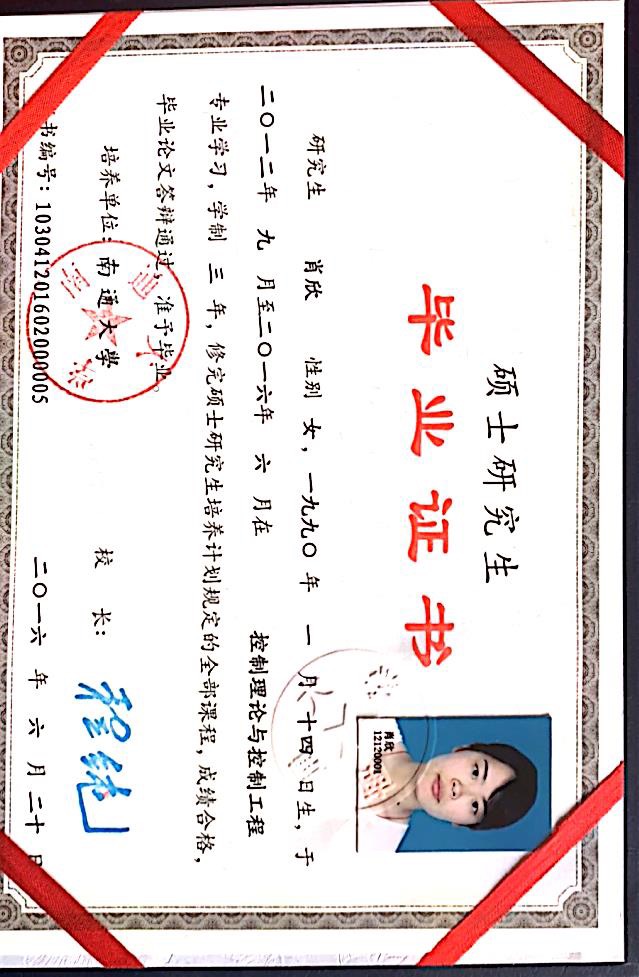 硕士研究生
毕业证书
肖欣
12120001
研究生 肖欣 性别 女，一九九〇 年 一 月 十四 日生，于
二〇一二年 九 月至二〇一六年 六 月在 控制理论与控制工程
专业学习，学制 三 年，修完硕士研究生培养计划规定的全部课程，成绩合格，
毕业论文答辩通过，准予毕业。
培养单位：南通大学 校 长：
书编号：103041201602000005 二〇一六 年 六 月 二十 日